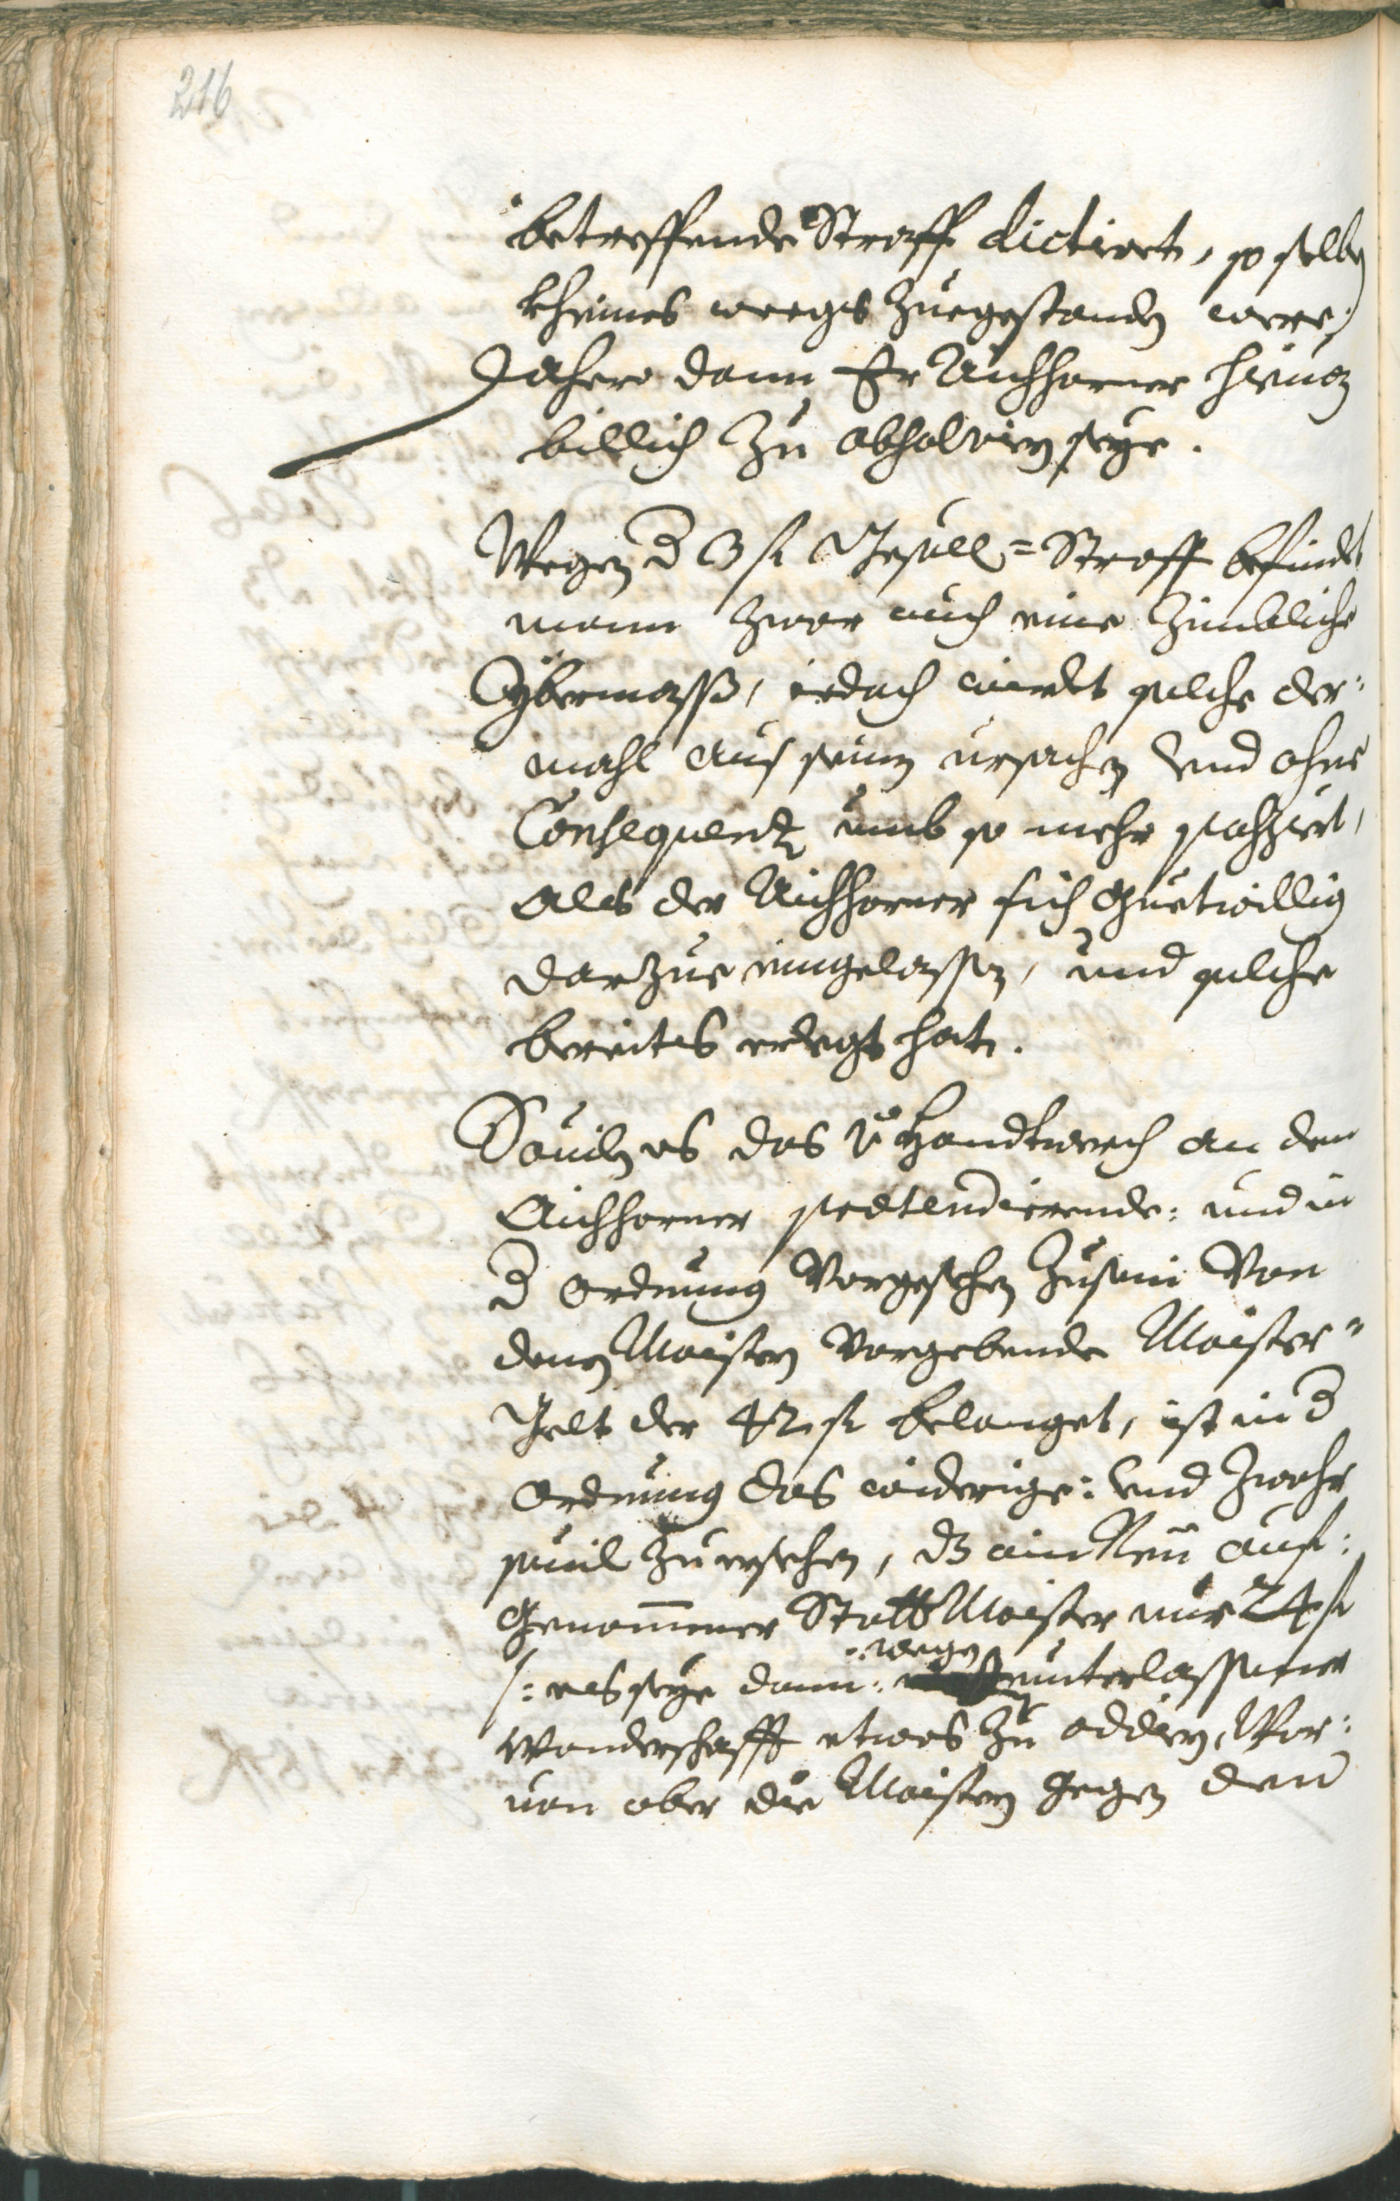 216
betreffende Straff dictiert, so selben
kheines weegs zuegestanden were,
Dahero dann Er Aichhorner hieuon
billich zu absolvirn seye.
Wegen d 3 fl Gesöll=Straff befindet
mann zwar auch eine Zimbliche
Ybermasß, iedoch wirdet solche der:
mahl aus seinen ursachen und ohne
Consequentz umb so mehr passiert,
als der Aichhorner sich guetwillig
darzue eingelassen, und solche
bereits erlegt hat.
Souil es das Handtwerch an den
Aichhorner praetendierende: und in
d ordnung Vorgesehen Zusein Von
denen Maistern Vorgebende Maister=
Gelt der 42 fl belanget, ist in d
ordnung das widerige: und zwahr
souil zuersehen, dz ain Neu auf:
Genommener Statt Maister nur 24 fl
/: es seye dann: wegen unterlassener
Wanderschafft etwas zu addirn, Wor:
uon aber die Maistern gegen dem